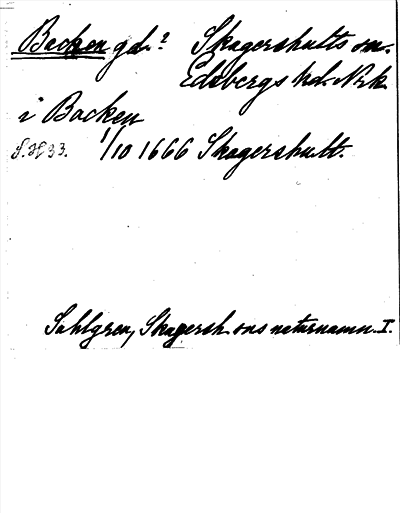 Backen gd.? Skagershults sn.
Edsbergs hd. Nrk.
i Backen
S.H 33. 1/10 1666 Skagershult.
Sahlgren, Skagersh. sns naturnamn I.